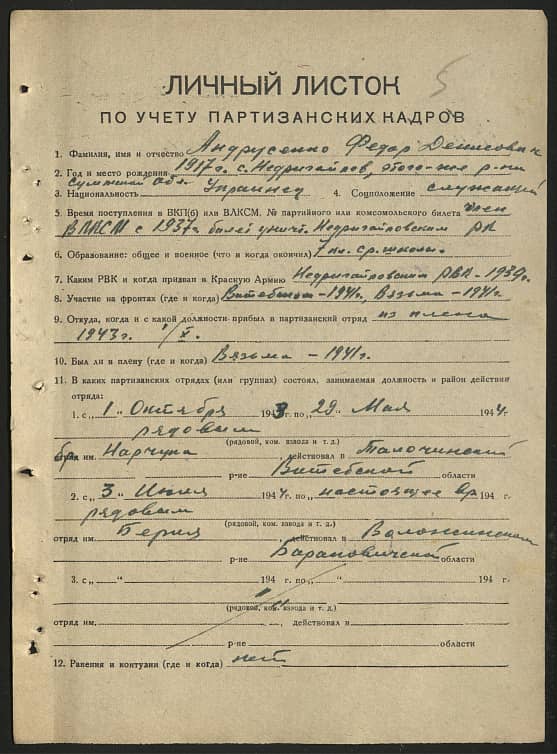 5
ЛИЧНЫЙ ЛИСТОК
ПО УЧЕТУ ПАРТИЗАНСКИХ КАДРОВ
1. Фамилия, имя и отчество Андрусенко Федор Денисович
2. Год и место рождения 1917г. с. Недригайлов, этого-же р-на
Сумской обл.
3. Национальность Украинец 4. Соцположение служащий
5. Время поступления в ВКП(б) или ВЛКСМ. № партийного или комсомольского билета член
ВЛКСМ с 1937г. билет уничт. Недригайловским РК
6. Образование: общее и военное (что и когда окончил) 7 кл. ср. школы.
7. Каким РВК и когда призван в Красную Армию Недригайловский РВК - 1939г.
8. Участие на фронтах (где и когда) Витебском - 1941г. Вязьма - 1941г.
9. Откуда, когда и с какой должности прибыл в партизанский отряд из плена
1943г. 1/X.
10. Был ли в плену (где и когда) Вязьма - 1941г.
11. В каких партизанских отрядах (или группах) состоял, занимаемая должность и район действия
отряда:
1. с „1" Октября 1943 г. по „29" Мая 1944 г.
рядовым
(рядовой, ком. взвода и т. д.)
отряд им. Нарчука, действовал в Талочинский
р-не Витебской области
2. с „3" Июня 1944 г. по „настоящее вр 194 г.
рядовым
(рядовой, ком. взвода и т. д.)
отряд им. Берия, действовал в Воложинском
р-не Барановичской области
3. с „ " 194 г. по „ " 194 г.
(рядовой, ком. взвода и т. д.)
отряд им. , действовал в
р-не области
12. Ранения и контузии (где и когда) нет